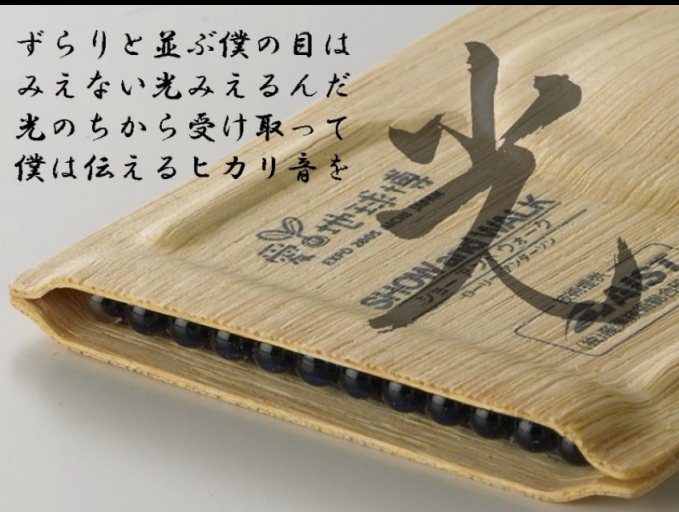 ずらりと並ぶ僕の目は
みえない光みえるんだ
光のちから受け取って
僕は伝えるヒカリ音を
光
愛・地球博
EXPO 2005 AICHI JAPAN
SHOW and WALK
ショー アンド ウォーク
ローリー・アンダーソン
AIST